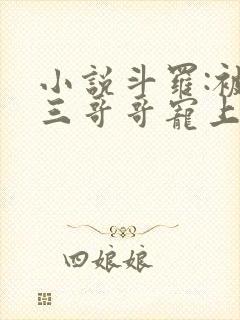 小説斗羅:被
三哥哥寵上
四娘娘